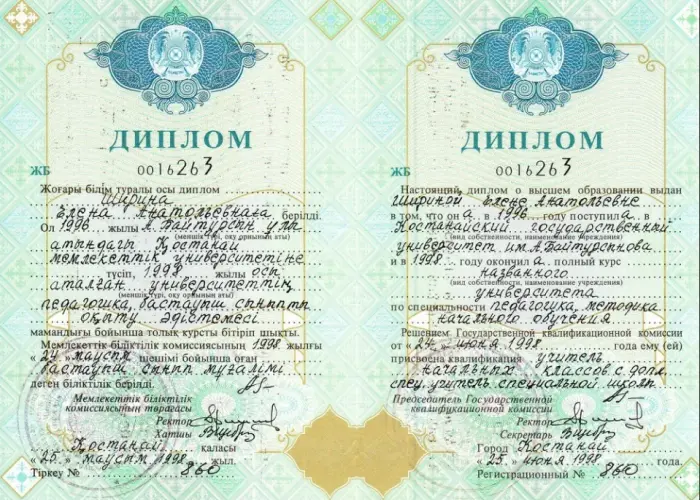 ДИПЛОМ
ЖБ 0016263
Жоғары білім туралы осы диплом
Ширина
Елена Анатольевнаға берілді.
Ол 1996 жылы А. Байтұрсын ұлы
(меншік түрі, оқу орнының аты)
атындағы Костанай
мемлекеттік университетіне
түсіп, 1998 жылы осы
аталған университеттің
(меншік түрі, оқу орнының аты)
педагогика, бастауыш
оқыту әдістемесі
мамандығы бойынша толық курсты бітіріп шықты.
Мемлекеттік біліктілік комиссиясының 1998 жылғы
« 24 » маусым шешімі бойынша оған
бастауыш сынып мұғалімі
деген біліктілік берілді.
Мемлекеттік біліктілік
комиссиясының төрағасы
Ректор
Хатшы
Костанай қаласы
« 25 » маусым 1998 жыл.
Тіркеу № 860
ДИПЛОМ
ЖБ 0016263
Настоящий диплом о высшем образовании выдан
Шириной Елене Анатольевне
в том, что он а в 1996 году поступил а в
Костанайский государственный
(вид собственности, наименование учреждения)
университет им. А. Байтурсынова
и в 1998 году окончил а полный курс
названного
(вид собственности, наименование учреждения)
университета
по специальности педагогика, методика
начального обучения
Решением Государственной квалификационной комиссии
от « 24 » июня 1998 года ему (ей)
присвоена квалификация учитель
начальных классов с доп.
спец. учитель специальной школы
Председатель Государственной
квалификационной комиссии
Ректор
Секретарь
Город Костанай
« 25 » июня 1998 года.
Регистрационный № 860